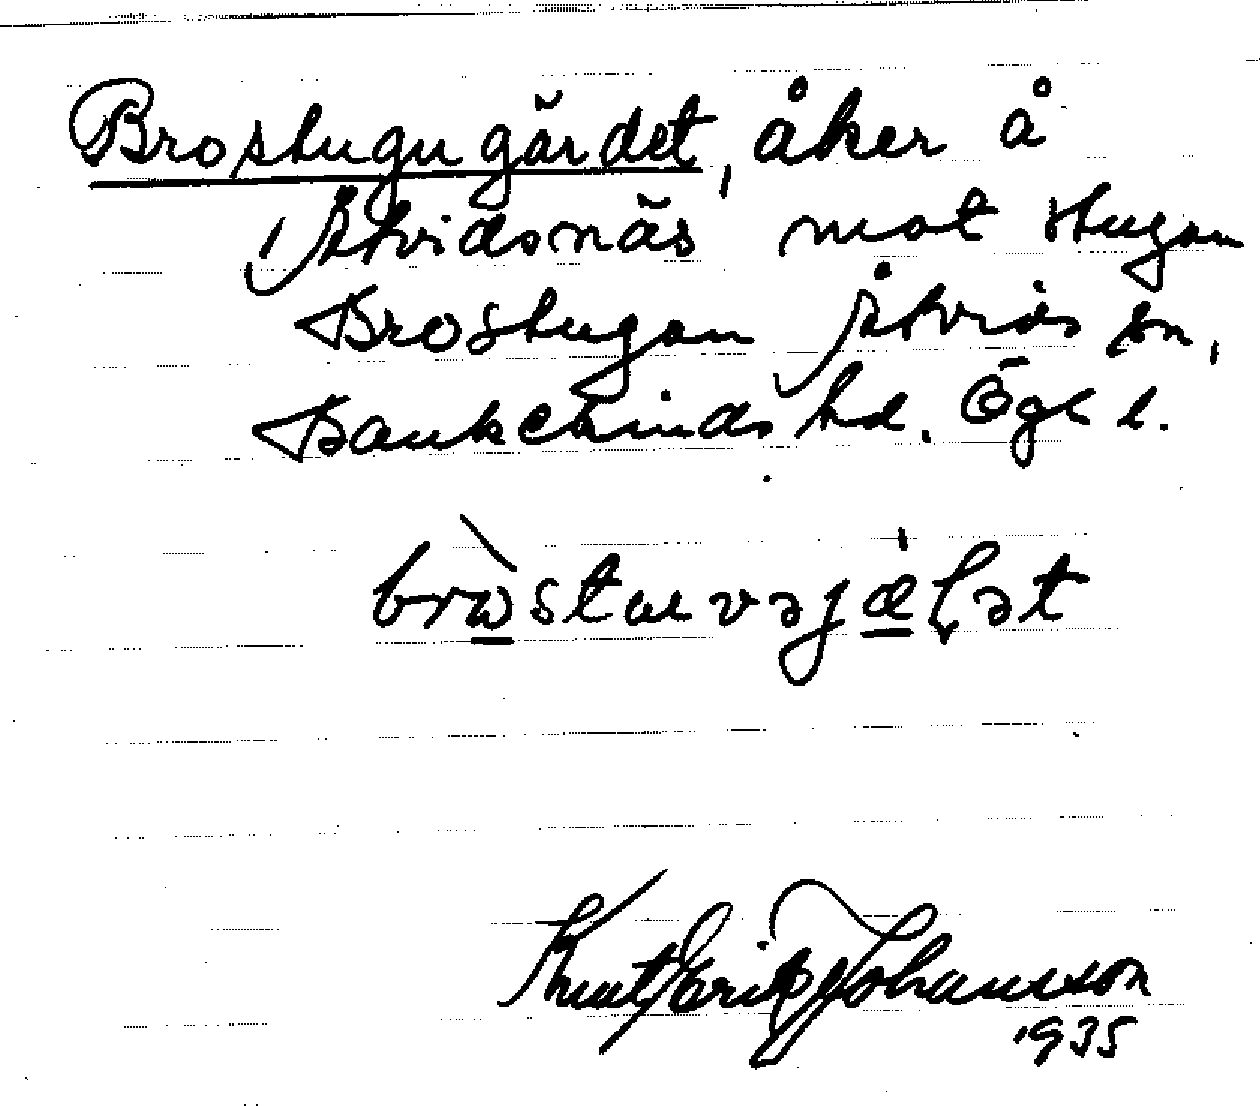 Brostugugärdet, åker å
Åtvidsnäs mot stugan
Brostugan Åtvids sn,
Bankekinds hd. Ögl l.
Knut Erik Johansson
1935